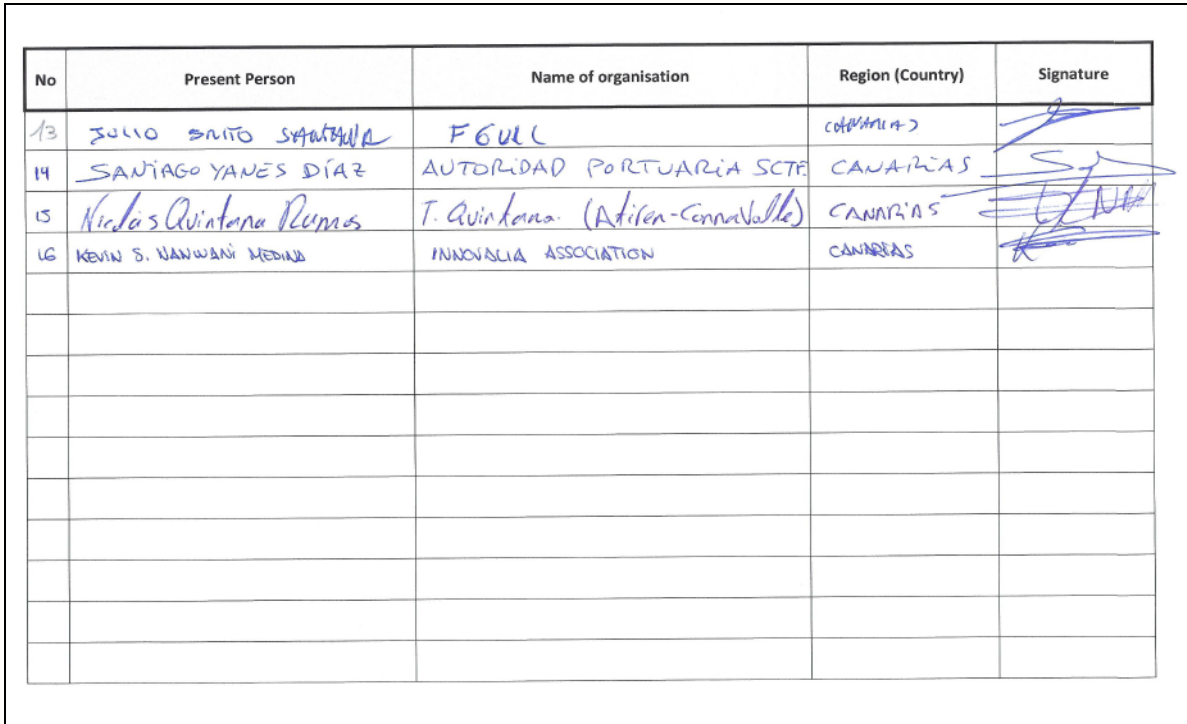 No Present Person Name of organisation Region (Country) Signature
13 JULIO BRITO SANTANA FGULL CANARIAS
14 SANTIAGO YANES DÍAZ AUTORIDAD PORTUARIA SCTF CANARIAS
15 Nicolás Quintana Ramos T. Quintana. CANARIAS
16 KEVIN S. NANWANI MEDINA INNOVALIA ASSOCIATION CANARIAS